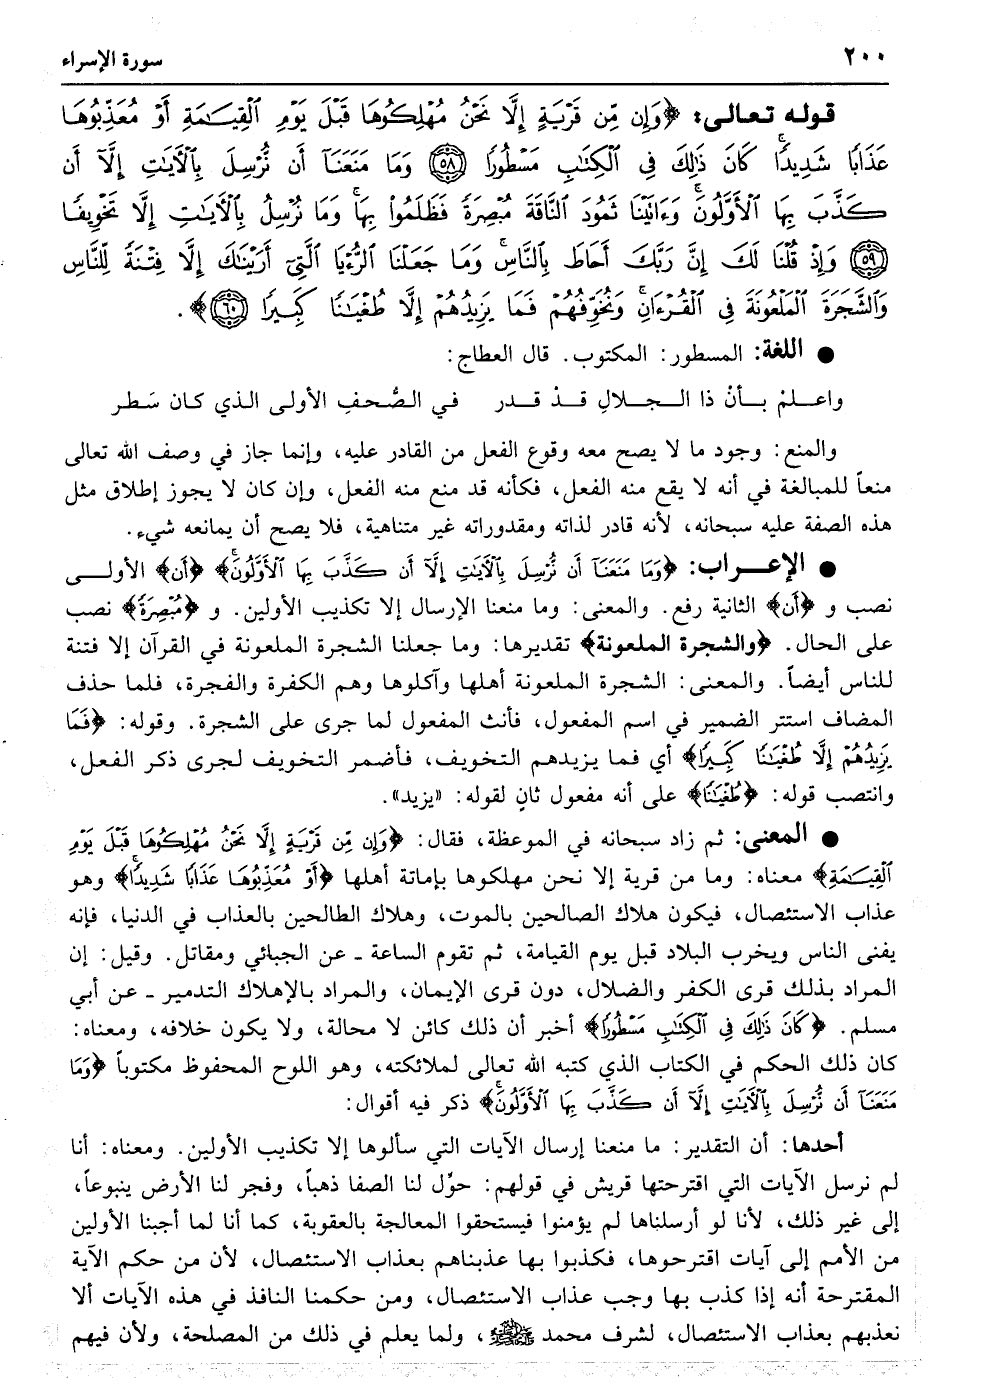 ٢٠٠ سورة الإسراء
قوله تعالى: ﴿وَإِن مِّن قَرْيَةٍ إِلَّا نَحْنُ مُهْلِكُوهَا قَبْلَ يَوْمِ الْقِيَـٰمَةِ أَوْ مُعَذِّبُوهَا
عَذَابًا شَدِيدًا ۚ كَانَ ذَٰلِكَ فِي الْكِتَـٰبِ مَسْطُورًا ﴿٥٨﴾ وَمَا مَنَعَنَآ أَن نُّرْسِلَ بِالْآيَـٰتِ إِلَّآ أَن
كَذَّبَ بِهَا الْأَوَّلُونَ ۚ وَءَاتَيْنَا ثَمُودَ النَّاقَةَ مُبْصِرَةً فَظَلَمُواْ بِهَا ۚ وَمَا نُرْسِلُ بِالْآيَـٰتِ إِلَّا تَخْوِيفًا
﴿٥٩﴾ وَإِذْ قُلْنَا لَكَ إِنَّ رَبَّكَ أَحَاطَ بِالنَّاسِ ۚ وَمَا جَعَلْنَا الرُّءْيَا الَّتِيٓ أَرَيْنَـٰكَ إِلَّا فِتْنَةً لِّلنَّاسِ
وَالشَّجَرَةَ الْمَلْعُونَةَ فِي الْقُرْءَانِ ۚ وَنُخَوِّفُهُمْ فَمَا يَزِيدُهُمْ إِلَّا طُغْيَـٰنًا كَبِيرًا ﴿٦٠﴾﴾.
● اللغة: المسطور: المكتوب. قال العطاج:
واعلمْ بأنْ ذا الجلالِ قدْ قدر في الصُّحفِ الأولى الذي كان سَطر
والمنع: وجود ما لا يصح معه وقوع الفعل من القادر عليه، وإنما جاز في وصف الله تعالى
منعاً للمبالغة في أنه لا يقع منه الفعل، فكأنه قد منع منه الفعل، وإن كان لا يجوز إطلاق مثل
هذه الصفة عليه سبحانه، لأنه قادر لذاته ومقدوراته غير متناهية، فلا يصح أن يمانعه شيء.
● الإعراب: ﴿وَمَا مَنَعَنَآ أَن نُّرْسِلَ بِالْآيَـٰتِ إِلَّآ أَن كَذَّبَ بِهَا الْأَوَّلُونَ ۚ﴾ ﴿أن﴾ الأولى
نصب و ﴿أَن﴾ الثانية رفع. والمعنى: وما منعنا الإرسال إلا تكذيب الأولين. و ﴿مُبْصِرَةً﴾ نصب
على الحال. ﴿والشجرة الملعونة﴾ تقديرها: وما جعلنا الشجرة الملعونة في القرآن إلا فتنة
للناس أيضاً. والمعنى: الشجرة الملعونة أهلها وآكلوها وهم الكفرة والفجرة، فلما حذف
المضاف استتر الضمير في اسم المفعول، فأنث المفعول لما جرى على الشجرة. وقوله: ﴿فَمَا
يَزِيدُهُمْ إِلَّا طُغْيَـٰنًا كَبِيرًا﴾ أي فما يزيدهم التخويف، فأضمر التخويف لجرى ذكر الفعل،
وانتصب قوله: ﴿طُغْيَـٰنًا﴾ على أنه مفعول ثانٍ لقوله: «يزيد».
● المعنى: ثم زاد سبحانه في الموعظة، فقال: ﴿وَإِن مِّن قَرْيَةٍ إِلَّا نَحْنُ مُهْلِكُوهَا قَبْلَ يَوْمِ
الْقِيَـٰمَةِ﴾ معناه: وما من قرية إلا نحن مهلكوها بإماتة أهلها ﴿أَوْ مُعَذِّبُوهَا عَذَابًا شَدِيدًا ۚ﴾ وهو
عذاب الاستئصال، فيكون هلاك الصالحين بالموت، وهلاك الطالحين بالعذاب في الدنيا، فإنه
يفنى الناس ويخرب البلاد قبل يوم القيامة، ثم تقوم الساعة ـ عن الجبائي ومقاتل. وقيل: إن
المراد بذلك قرى الكفر والضلال، دون قرى الإيمان، والمراد بالإهلاك التدمير ـ عن أبي
مسلم. ﴿كَانَ ذَٰلِكَ فِي الْكِتَـٰبِ مَسْطُورًا﴾ أخبر أن ذلك كائن لا محالة، ولا يكون خلافه، ومعناه:
كان ذلك الحكم في الكتاب الذي كتبه الله تعالى لملائكته، وهو اللوح المحفوظ مكتوباً ﴿وَمَا
مَنَعَنَآ أَن نُّرْسِلَ بِالْآيَـٰتِ إِلَّآ أَن كَذَّبَ بِهَا الْأَوَّلُونَ ۚ﴾ ذكر فيه أقوال:
أحدها: أن التقدير: ما منعنا إرسال الآيات التي سألوها إلا تكذيب الأولين. ومعناه: أنا
لم نرسل الآيات التي اقترحتها قريش في قولهم: حوِّل لنا الصفا ذهباً، وفجر لنا الأرض ينبوعاً،
إلى غير ذلك، لأنا لو أرسلناها لم يؤمنوا فيستحقوا المعالجة بالعقوبة، كما أنا لما أجبنا الأولين
من الأمم إلى آيات اقترحوها، فكذبوا بها عذبناهم بعذاب الاستئصال، لأن من حكم الآية
المقترحة أنه إذا كذب بها وجب عذاب الاستئصال، ومن حكمنا النافذ في هذه الآيات ألا
نعذبهم بعذاب الاستئصال، لشرف محمد ﷺ، ولما يعلم في ذلك من المصلحة، ولأن فيهم